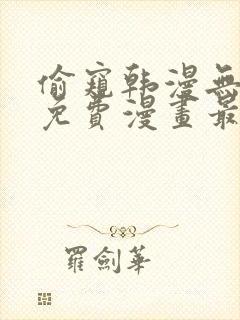 偷窺韩漫無
免費漫畫最
羅劍華